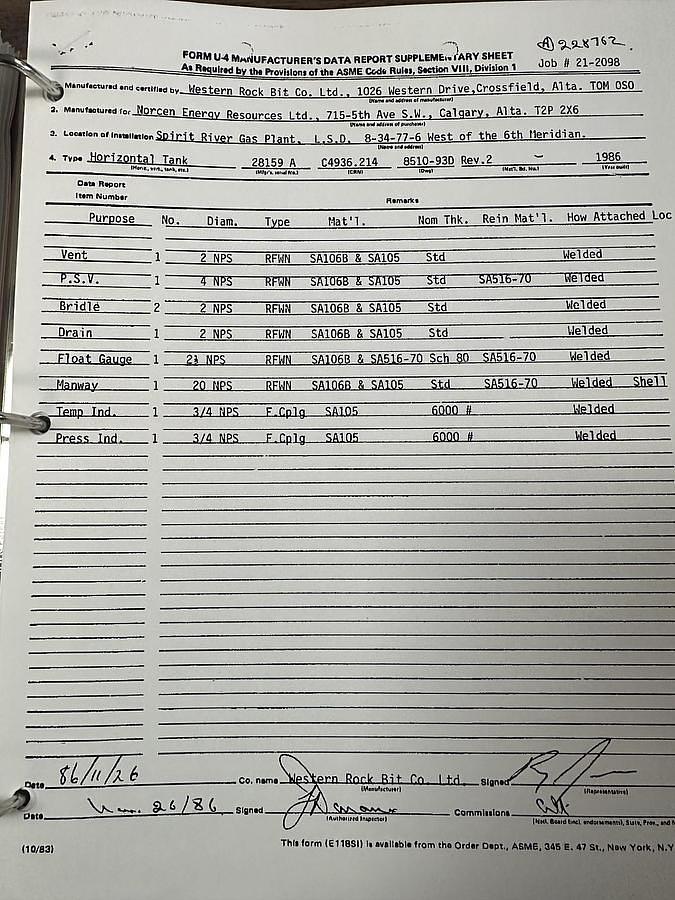 Ⓐ 228762.
FORM U-4 MANUFACTURER'S DATA REPORT SUPPLEMENTARY SHEET
As Required by the Provisions of the ASME Code Rules, Section VIII, Division 1
Job # 21-2098
Manufactured and certified by Western Rock Bit Co. Ltd., 1026 Western Drive,Crossfield, Alta. TOM OSO
(Name and address of manufacturer)
2. Manufactured for Norcen Energy Resources Ltd., 715-5th Ave S.W., Calgary, Alta. T2P 2X6
(Name and address of purchaser)
3. Location of Installation Spirit River Gas Plant, L.S.D. 8-34-77-6 West of the 6th Meridian.
(Name and address)
4. Type Horizontal Tank 28159 A C4936.214 8510-93D Rev.2 - 1986
(Horiz., vert., tank, etc.) (Mfg's. serial No.) (CRN) (Dwg) (Nat'l. Bd. No.) (Year built)
Data Report
Item Number
Remarks
Purpose No. Diam. Type Mat'l. Nom Thk. Rein Mat'l. How Attached Loc
Vent 1 2 NPS RFWN SA106B & SA105 Std Welded
P.S.V. 1 4 NPS RFWN SA106B & SA105 Std SA516-70 Welded
Bridle 2 2 NPS RFWN SA106B & SA105 Std Welded
Drain 1 2 NPS RFWN SA106B & SA105 Std Welded
Float Gauge 1 NPS RFWN SA106B & SA516-70 Sch 80 SA516-70 Welded
Manway 1 20 NPS RFWN SA106B & SA105 Std SA516-70 Welded Shell
Temp Ind. 1 3/4 NPS F.Cplg SA105 6000 # Welded
Press Ind. 1 3/4 NPS F.Cplg SA105 6000 # Welded
Date 86/11/26 Co. name Western Rock Bit Co. Ltd. Signed
(Manufacturer) (Representative)
Date 26/86 Signed Commissions
(Authorized Inspector) (Natl. Board (incl. endorsements), State, Prov., and N
(10/83)
This form (E118SI) is available from the Order Dept., ASME, 345 E. 47 St., New York, N.Y